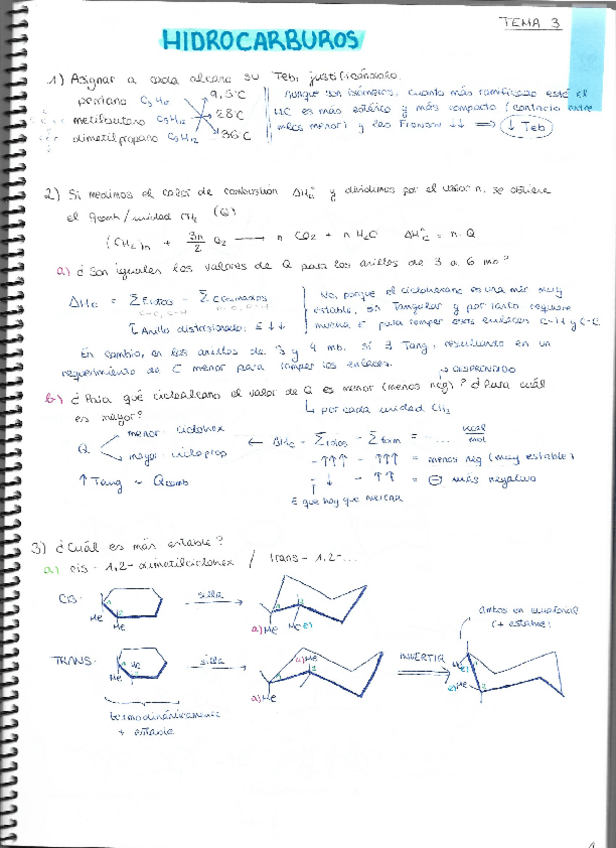 TEMA 3
HIDROCARBUROS
1) Asignar a cada alcano su Teb, justificándolo.
pentano C5H12 9,5ºC
metilbutano C5H12 28ºC
dimetilpropano C5H12 36ºC
Aunque son isómeros, cuanto más ramificado esté el
HC es más esférico y más compacto (contacto entre
mlcs menor) y las Fromm ↓↓ ⟹ ↓ Teb
2) Si medimos el calor de combustión ΔHcº y dividimos por el valor n, se obtiene
el qcomb/unidad CH2 (Q)
(CH2)n + 3n/2 O2 → n CO2 + n H2O ΔHcº = n·Q
a) ¿Son iguales los valores de Q para los anillos de 3 a 6 mb?
ΔHc = Σ Erotos - Σ Eformados
↳ Anillo distorsionado: E ↓↓
No, porque el ciclohexano es una mlc muy
estable, sin Tangular y por tanto requiere
mucha E para romper esos enlaces C-H y C-C.
En cambio, en los anillos de 3 y 4 mb. sí ∃ Tang, resultando en un
requerimiento de E menor para romper los enlaces.
DESPRENDIDO
b) ¿Para qué cicloalcano el valor de Q es menor (menos neg)? ¿Para cuál
es mayor?
↳ por cada unidad CH2
Q
menor ciclohex
mayor cicloprop
← ΔHc = Σ rotos - Σ form = -... kcal/mol
-↑↑↑ - ↑↑↑ = menos neg (muy estable)
- ↓ - ↑↑ = ⊖ más negativo
↑ Tang ~ Qcomb
E que hay que APLICAR
3) ¿Cuál es más estable?
a) cis-1,2-dimetilciclohex / trans-1,2-...
CIS:
Me
Me
silla
a) Me
Me e)
ambos en ecuatorial
(+ estable)
TRANS:
Me
Me
silla
a) Me
a) Me
INVERTIR
e) Me
e) Me
termodinámicamente
+ estable